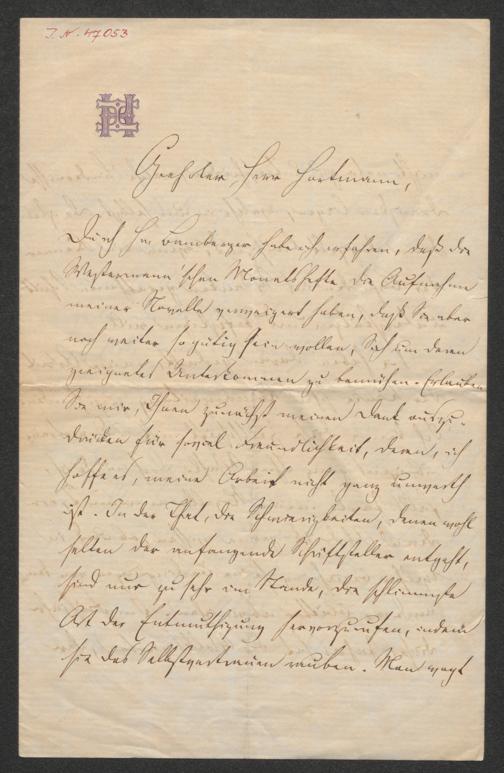 I. N. 47053
Geehrter Herr Hartmann,
Durch Hn Bamberger habe ich erfahren, daß die
Westermann'schen Monatshefte die Aufnahme
meiner Novelle verweigert haben, daß Sie aber
noch weiter so gütig sein wollen, Sich um deren
geeignetes Unterkommen zu bemühen. Erlauben
Sie mir, Ihnen zunächst meinen Dank auszu-
drücken für soviel Freundlichkeit, deren, ich
hoffe es, meine Arbeit nicht ganz unwerth
ist. In der That, die Schwierigkeiten, denen wohl
selten der anfangende Schriftsteller entgeht,
sind nur zu sehr im Stande, die schlimmste
Art der Entmuthigung hervorzurufen, indem
sie das Selbstvertrauen rauben. Man wagt